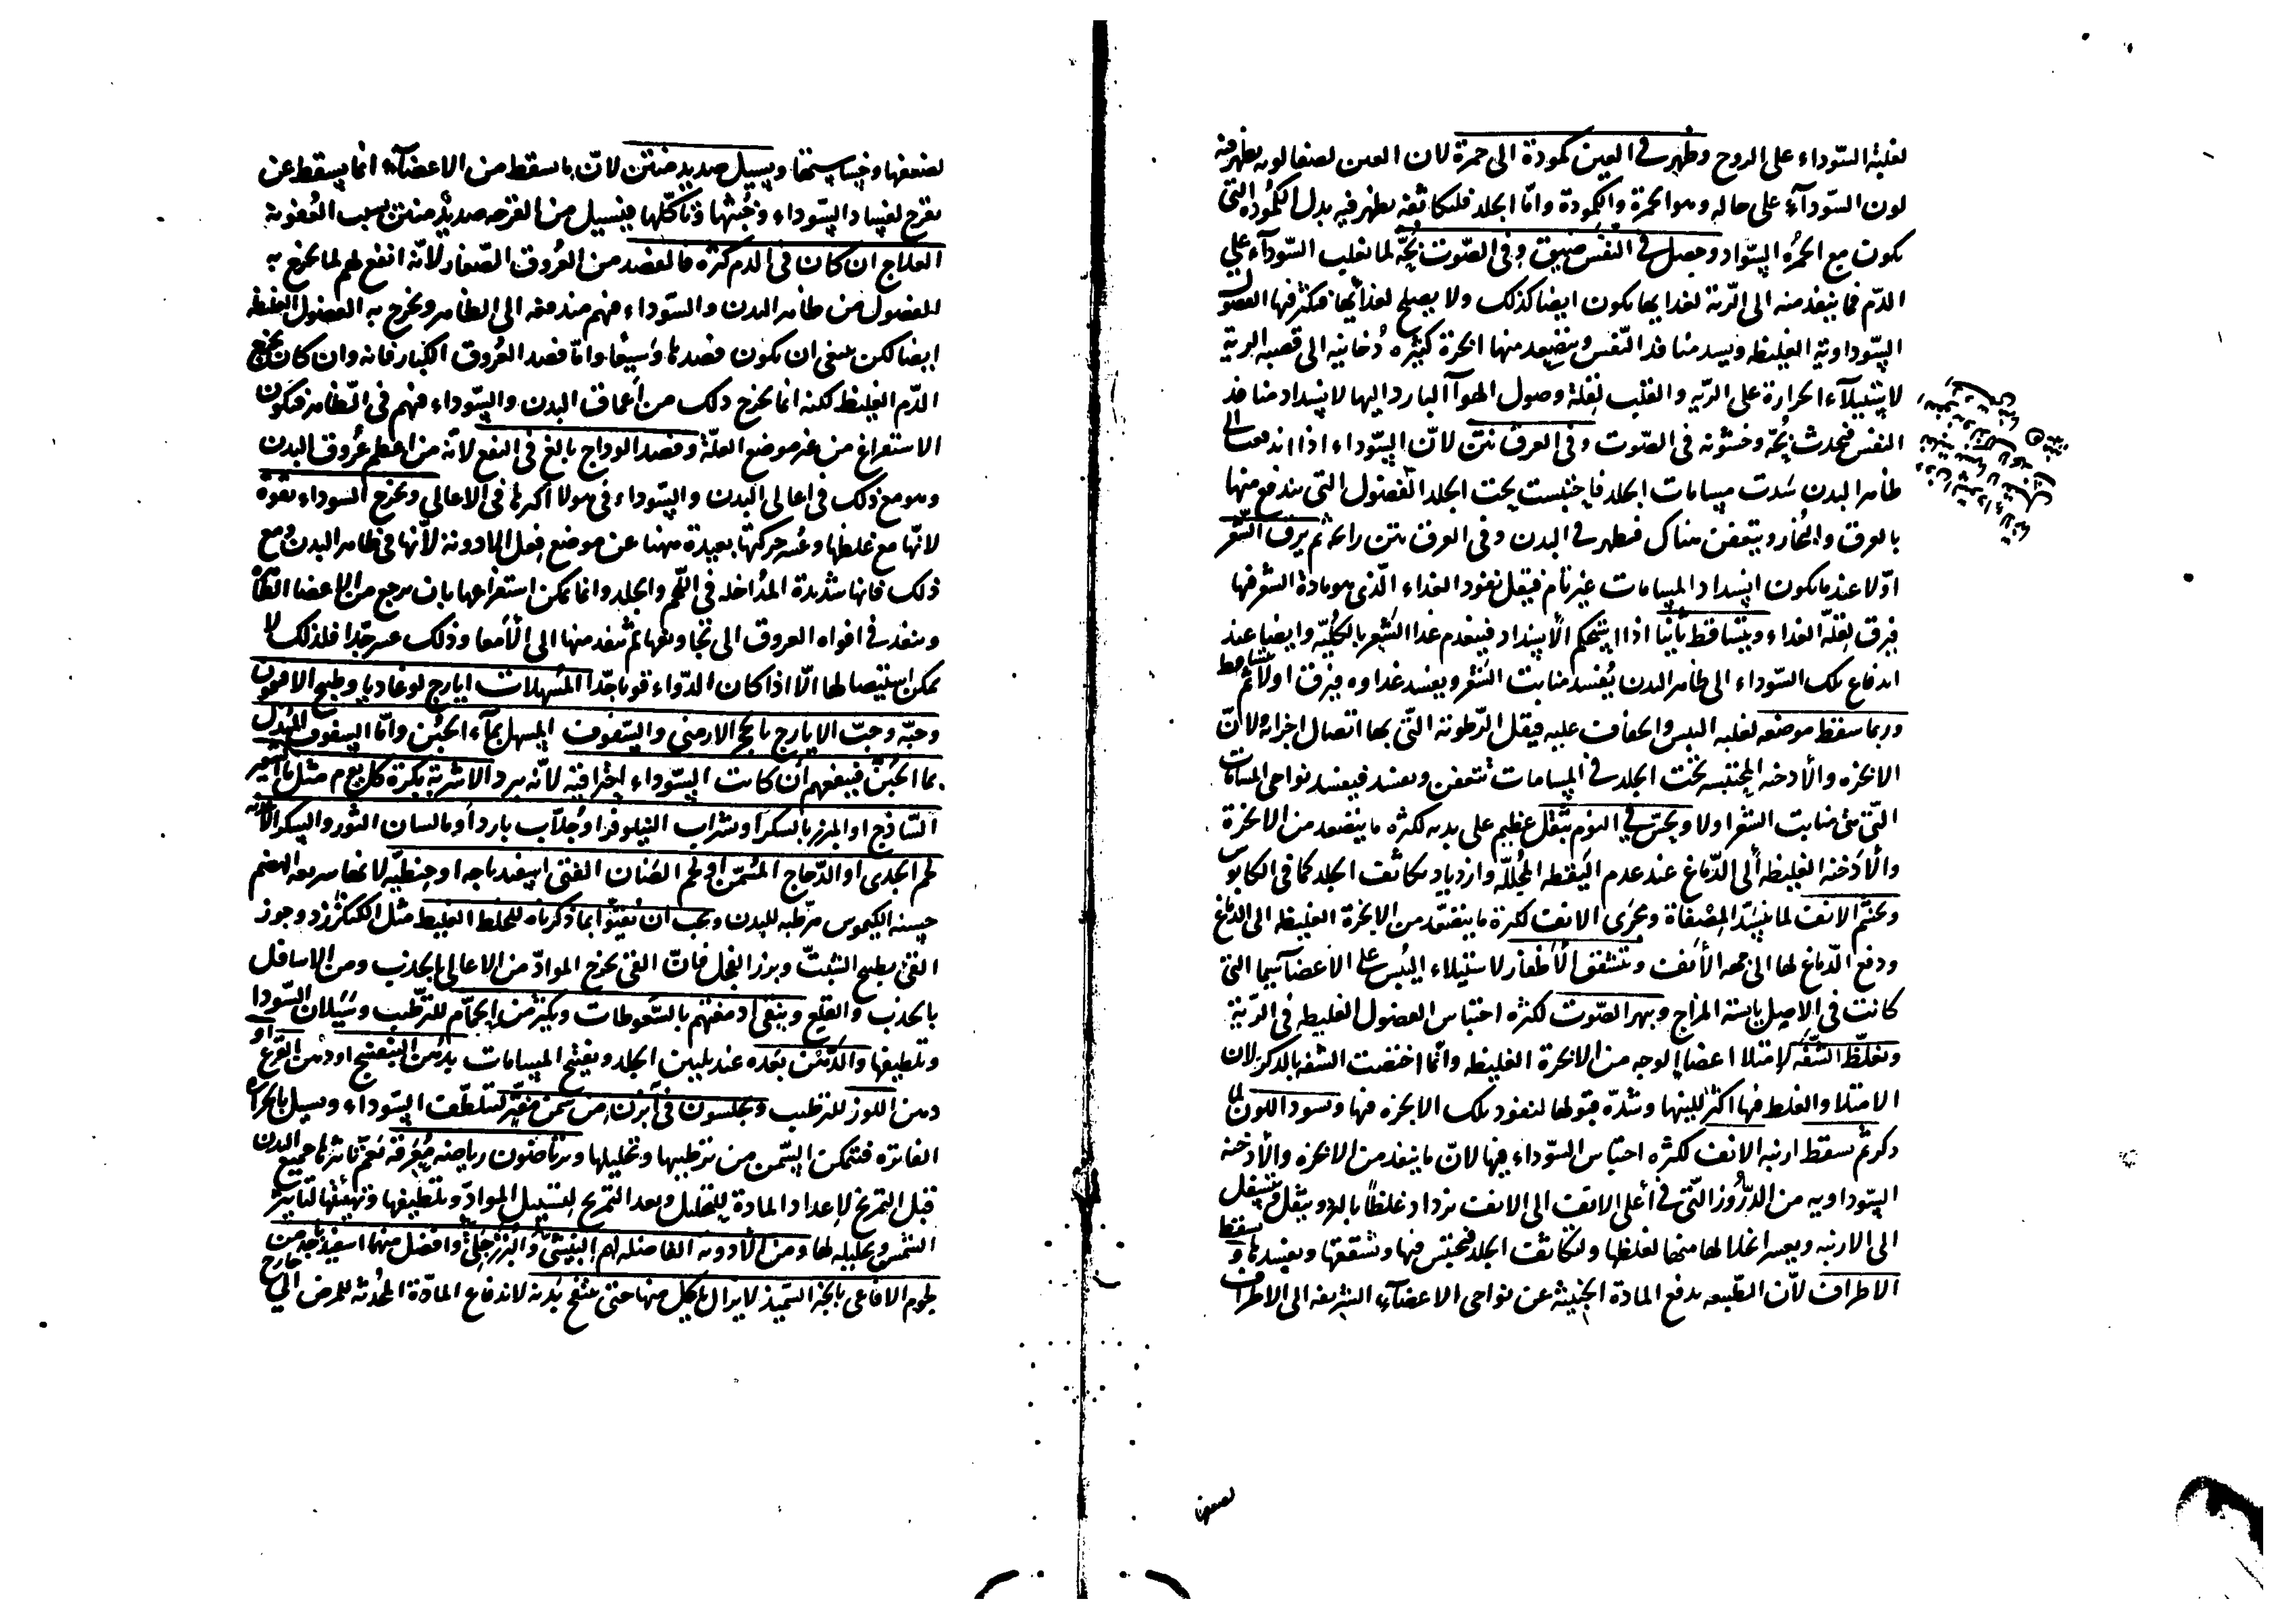 لغلبة السّوداء على الروح وظهر في العين كمودة الى حمرة لان العين لصفا لونه يظهر فيه
لون السّودآء على حاله وهو الحمرة والكمودة وامّا الجلد فلتكاثفه يظهر فيه بدل الكمُودة التى
يكون مع الحُمرة السّواد وحصل في النفَس ضيق وفى الصّوت بُحّة لما تغلب السّودآء على
الدّم فما ينفذ منه الى الرّية لغذايها يكون ايضا كذلك ولا يصلح لغذائها فتكثر فيها الفضول
السّوداوية الغليظه ويسد منافذ النّفس ويتصعد منها ابخرة كثيره دُخانيه الى قصبه الرية
لاستيلآء الحرارة على الرّيه والقلب لقلة وصول الهوآ البارد اليها لانسداد منافذ
النفس فيحدث بُحّه وخشونه فى الصّوت وفى العرق نتن لانّ السّوداء اذا اندفعت الى
ظاهر البدن سَدت مسامات الجلد فاحتبست تحت الجلد الفضول التى يندفع منها
بالعرق والبُخار ويتعفن هناك فيظهر في البدن وفى العرق نتن رائحة ثم يرق الشَّعر
اوّلا عند ما يكون انسداد المسامات غير تام فيقل نفوذ الغذاء الّذى هو مادة الشعر فيها
فيرق لقلّة الغذاء ويتساقط ثانيا اذا استحكم الانسداد فينعدم غذا الشعر بالكُليّه وايضا عند
اندفاع تلك السّوداء الى ظاهر البدن يُفسد منابت الشعر ويفسد غذاوه فيرق اولا ثم يتساقط
وربما سقط موضعه لغلبه اليبس والجفاف عليه فيقل الرّطوبة التّى بها اتصال اجزائه ولانّ
الابخره والأدخنه المحتبسه تحت الجلد في المسامات تتعفن ويفسد فيفسد نواحى المسامات
التّى هى منابت الشعر اولا ويحسّ في النوم بثقل عظيم على بدنه لكثره ما يتصعد من الابخرة
والأدخنه الغليظه الى الدّماغ عند عدم اليَقظه المُحلّله وازدياد تكاثف الجلد كما فى الكابوس
ويختم الانف لما ينسَد المِصفاة ومجرَى الانف لكثرة ما يتصعد من الابخرة الغليظه الى الدماغ
ودفع الدّماغ لها الى جهه الأنف وتتشقق الأظفار لاستيلاء اليُبس على الاعضا سيما التى
كانت فى الاصل يابسة المزاج ويبهر الصّوت لكثره احتباس الفضول الغليظه فى الرّية
وتغلّظ الشّفه لامتلا اعضا الوجه من الابخرة الغليظه وانّما اختصت الشفه بالذكر لان
الامتلا والغلظ فيها اكثر للينها وشدّه قبولها لنفوذ تلك الابخره فيها ويسود اللون لما
ذكر ثم يسقط ارنبه الانف لكثره احتباس السّوداء فيها لانّ ما ينفذ من الابخره والأدخنه
السّوداويه من الدّرُوز التّى في أعلى الانف الى الانف يزداد غلظًا بالبرد ويثقل فيتسفل
الى الارنبه ويعسر انحلالها منها لغلظها ولتكاثف الجلد فيحتبس فيها وتشققها ويفسدها و يسقط
الاطراف لأن الطّبيعه يدفع المادة الخبيثة عن نواحى الاعضآء الشريفه الى الاطراف
لضعفها وخساستها ويسيل صديد منتن لانّ ما يسقط من الاعضآء انّما يسقط عن
تقرح لفساد السّوداء وخُبثها وتأكّلها فيسيل من القرحه صديدٌ منتن بسبب العُفونة
العلاج ان كان فى الدم كثره فالفصد من العُروق الصّغار لانّه انفع لهم لما يخرج به
الفضول من ظاهر البدن والسّوداء فيهم مندفعه الى الظاهر ويخرج به الفضول الغليظه
ايضا لكن ينبغى ان يكون فصدها وَسِيعًا وامّا فصد العُروق الكبار فانه وان كان يخرج
الدّم الغليظ لكنه انما يخرج ذلك من أعماق البدن والسّوداء فيهم فى الظّاهر فيكون
الاستفراغ من غير موضع العلّة وفصد الوداج بالغ فى النفع لانّه من اعظم عُروق البدن
وهو مع ذلك فى اعالى البدن والسّوداء فى هولا اكثرها فى الاعالي ويخرج السوداء بقوة
لانّها مع غلظها وعُسر حركتها بعيدة ههنا عن موضع فعل الادوية لأنّها فى ظاهر البدن ومع
ذلك فانها شديدة المُداخله فى اللّحم والجلد وانما يمكن استفراغها بان يرجع من الاعضا الظاهره
وينفذ في افواه العروق الى تجاويفها ثم تنفذ منها الى الأمعا وذلك عسر جدّا فلذلك لا
يمكن استيصالها الّا اذا كان الدّواء قويا جّدا المُسهلات ايارج لوغاديا وطبيخ الافتيمون
وحبّه وحبّ الايارج بالحجر الارمنى والسّفوف المسهل بمآء الجُبُن وامّا السفوف المُبدل
بما الجُبن فينفعهم ان كانت السّوداء احتراقيه لانّه يبرد الاشربة بكرة كل يوم مثل ماء الشعير
السّاذج او المبزر بالسكر او شراب النيلوفر او جُلّاب بارد او ما لسان الثور والسكر الاغذيه
لحم الجدى او الدّجاج المُسمّن او لحم الضَان الفتى اسفيدباجه او حِنطيّه لانها سريعه الهضم
حسنه الكيموس مرّطبه للبدن ويجب ان يقيئوا بما ذكرناه للخلط الغليظ مثل الكنكرزد وجوز
القئ بطبيخ الشبتّ وبزر الفجل فانّ القئ يخرج الموادّ من الاعالى بالجذب ومن الاسافل
بالجذب والقلع وينقى ادمغتهم بالسّعوطات ويكثر من الحمّام للترطيب وسَيَلان السّودا
وتلطيفها والتّدهن بعده عند تليين الجلد وتفتح المسامات بدهن البنفسج او دهن القرع او
دهن اللوز للترطيب ويجلسون فى آبزن من سمن مفتّر لتتلطّف السّوداء وتسيل بالحراره
الفاتره فتمكن السّمن من ترطيبها وتحليلها ويرتاضون رياضه مُعرقة تعمّ تاثرها جميع البدن
قبل التمريخ لاعداد المادة للتحليل وبعد التمريخ لتسييل الموادّ وتلطيفها وتهيئها لتاثير
الشمس وتحليله لها ومن الأدوية الفاضله لهم البنيشتى والبُزرجلى وافضل منهما اسفيدباجه من
لحوم الافاعى بالخبز السّميذ لايزال ياكل منها حتى ينتفخ بدنه لاندفاع المادّة المحُدثه للمرض الى خارج